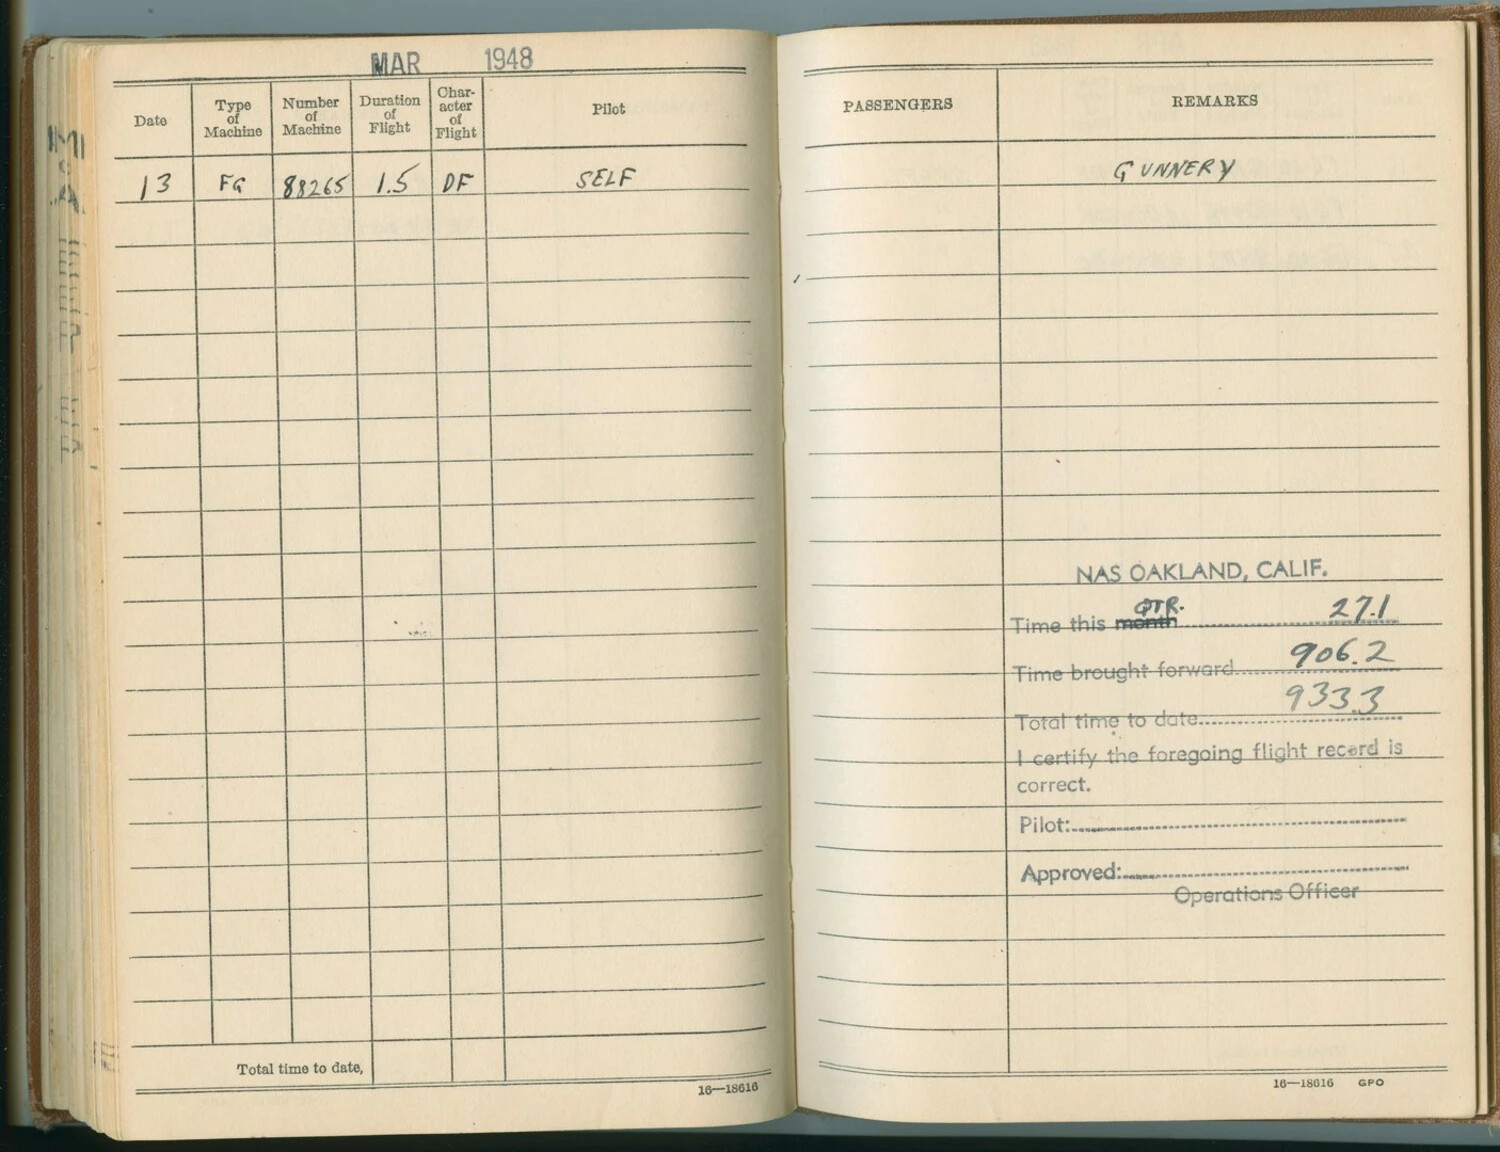 MAR 1948
Date
Type of Machine
Number of Machine
Duration of Flight
Char-acter of Flight
Pilot
13 FG 88265 1.5 DF SELF
Total time to date,
16—18616
PASSENGERS REMARKS
GUNNERY
NAS OAKLAND, CALIF.
QTR.
Time this month 27.1
Time brought forward 906.2
Total time to date 933.3
I certify the foregoing flight record is
correct.
Pilot:
Approved:
Operations Officer
16—18616 GPO